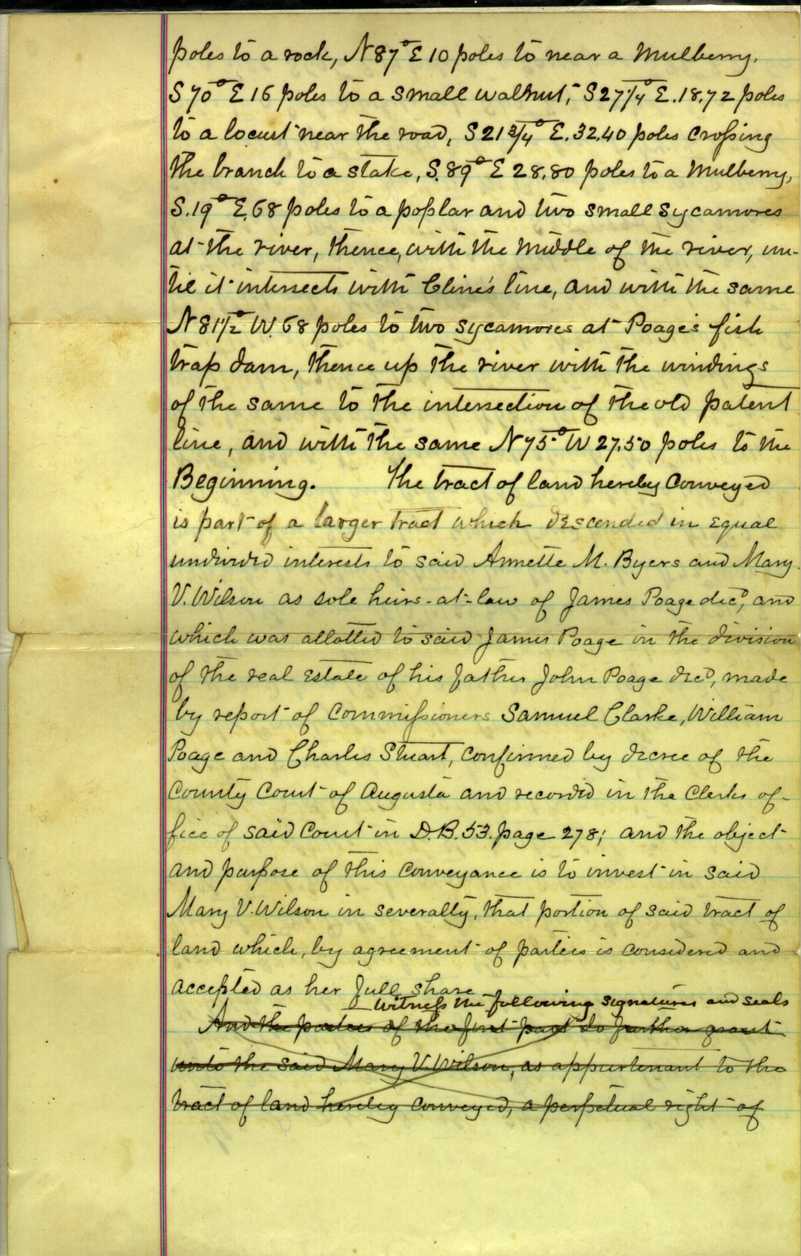 poles to a rock, N 87° E 10 poles to near a Mulberry.
S 70° E 16 poles to a small walnut, S 27 1/4° E. 18.72 poles
to a locust near the road, S 21 3/4° E. 32.40 poles crossing
the branch to a stake, S. 89° E 28.80 poles to a Mulberry,
S. 19° E. 68 poles to a poplar and two small sycamores
at the river, thence, with the middle of the river, un-
til it intersects with Cline's line, and with the same
N 81 1/2° W. 68 poles to two sycamores at Poage's fish
trap dam, thence up the river with the windings
of the same to the intersection of the old patent
line, and with the same N 75° W 27.50 poles to the
Beginning. The tract of land hereby conveyed
is part of a larger tract which descended in equal
undivided interests to said Annette M. Byers and Mary
V. Wilson as sole heirs-at-law of James Poage decd, and
which was allotted to said James Poage in the division
of the real estate of his father John Poage decd, made
by report of Commissioners Samuel Clarke, William
Poage and Charles Stuart, confirmed by decree of the
County Court of Augusta and recorded in the Clerks of-
fice of said Court in D.B. 53. page 278; and the object
and purpose of this conveyance is to invest in said
Mary V. Wilson in severalty, that portion of said tract of
land which, by agreement of parties is considered and
accepted as her full share
Witness the following signatures and seals
And the parties of the first part do further grant
unto the said Mary V. Wilson, as appurtenant to the
tract of land hereby conveyed, a perpetual right of